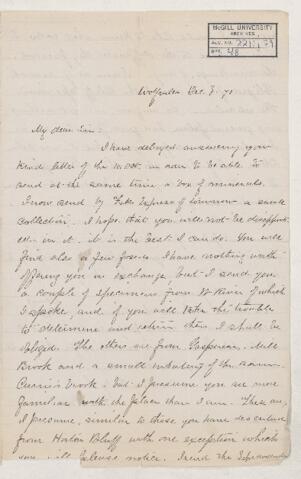 McGILL UNIVERSITY
ARCHIVES
ACC. NO.
REF.
Wolfville Dec. 7. 70
My dear Sir:-
I have delayed answering your
kind letter of the in order to be able to
send at the same time a box of minerals.
I now send by Express of tomorrow a small
collection. I hope that you will not be disappoint-
ed in it. it is the best I can do. You will
find also a few fossils. I have nothing worth
offering you in exchange, but I send you
a couple of specimens from River of which
I spoke, and if you will take the trouble
to determine and return them I shall be
obliged. The others are from Gaspereau, Mill
Brook and a small
Brook - but I presume you are more
familiar with the places than I am. These are,
I presume, similar to those you have described
from Horton Bluff with one exception which
you will please notice. I send the